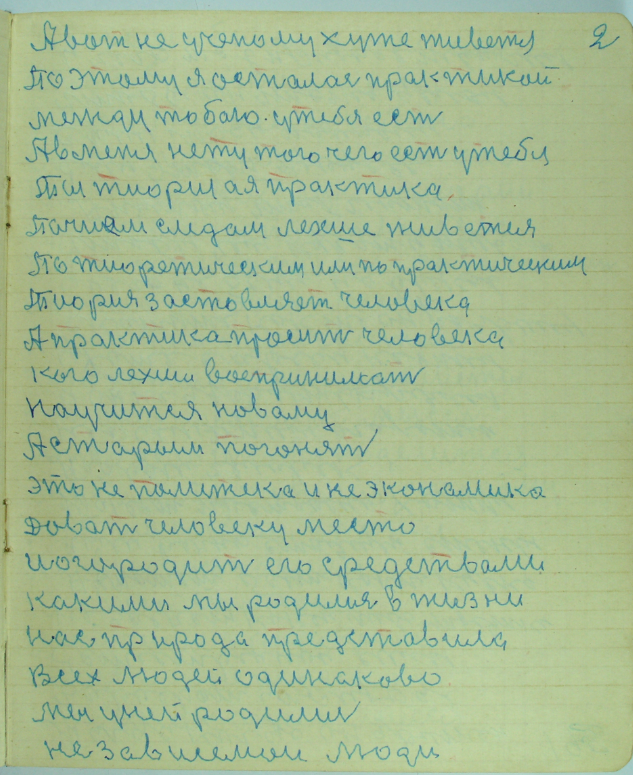 2
А вот не ученому хуже живется
По этому я остался практикой
между тобаю. у тебя ест
А в меня нету того чего ест у тебя
Ты тиория а я практика.
По чием следам лехше живется
По тиоретическим или по практическим
Тиория заставляет человека
А практика просит человека
кого лехши воспринимат
научится новаму
А старым погонят
это не политека и не экономика
доват человеку место
и огородит его средствами
какими мы родился в жизни
нас природа представила
всех людей одинаково
мы у ней родилис
не зависемои люди